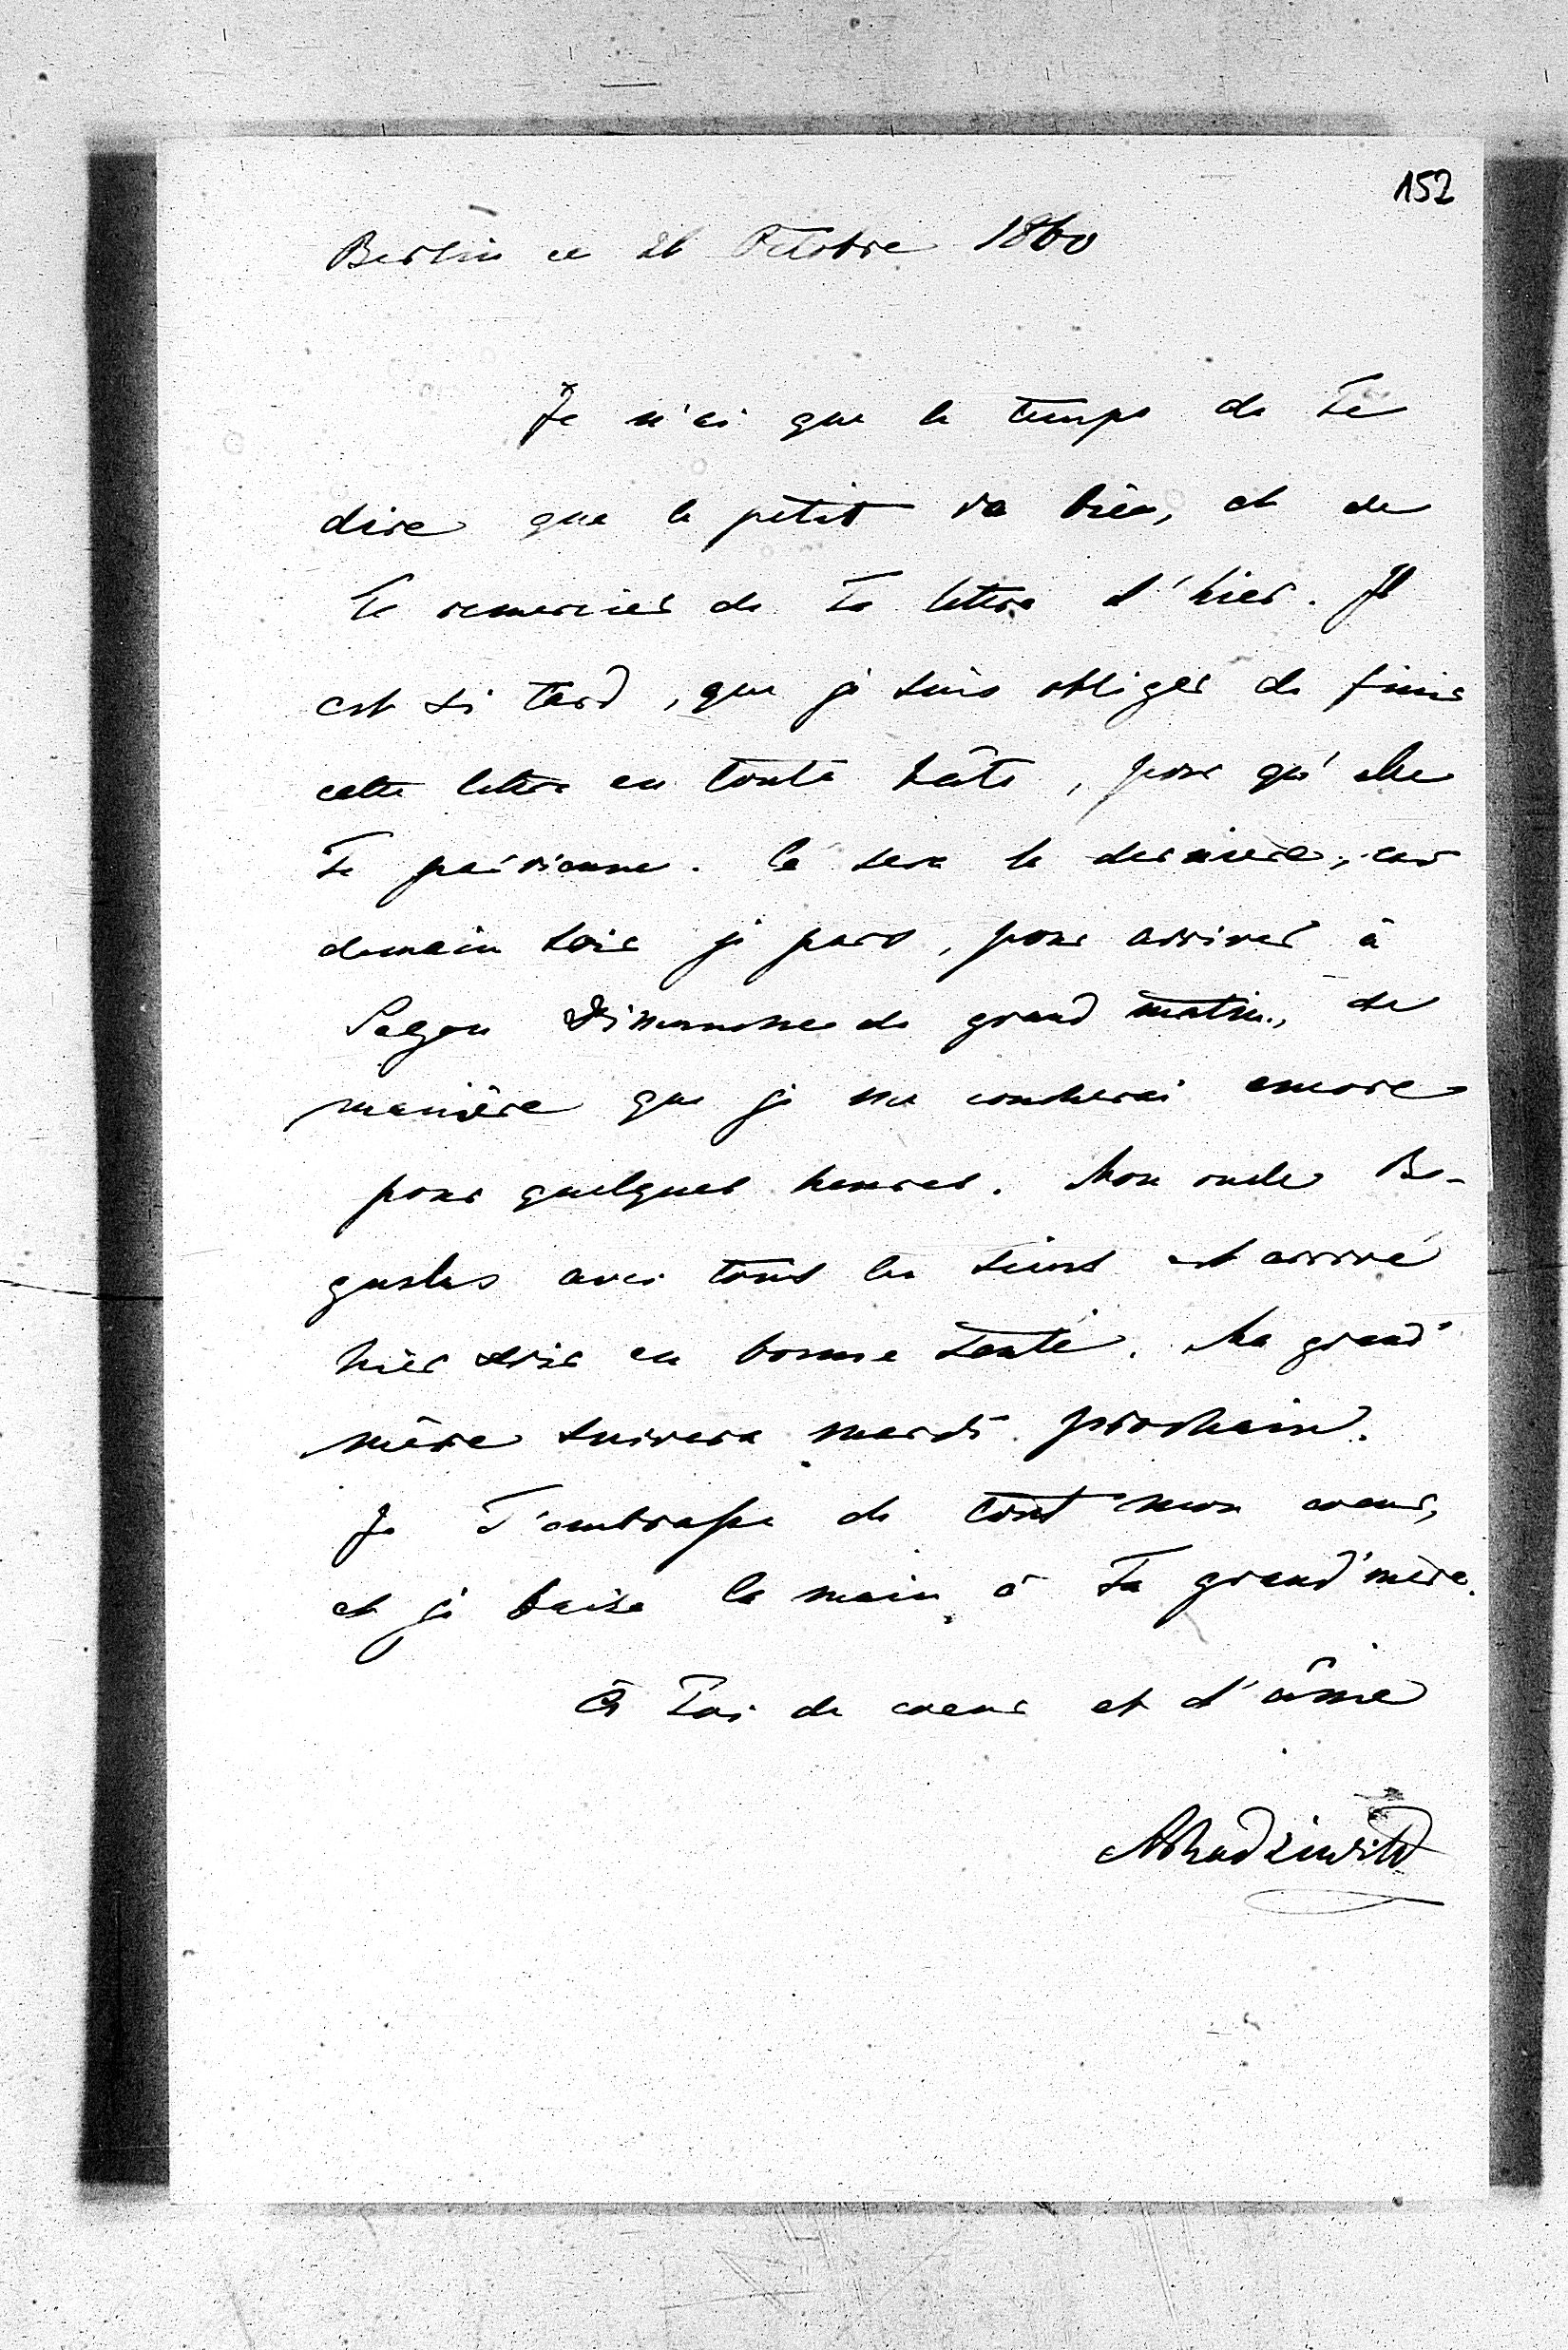 152
Berlin ce 26 Octobre 1860
Je n'ai que le temps de Te
dire que le petit va bien, et de
Te remercier de Ta lettre d'hier. Il
est si tard, que je suis obliger de finir
cette lettre en toute hâte, pour qu'elle
Te parvienne. Ce sera la dernière, car
demain soir je pars, pour arriver à
Sagan Dimanche de grand matin, de
manière que je me coucherai encore
pour quelques heures. Mon oncle Bo-
guslas avec tous les siens est arrivé
hier soir en bonne santé. Ma grand'
mère suivera mardi prochain.
Je T'embrasse de tout mon coeur,
et je baise la main à Ta grand'mère.
à Toi de coeur et d'âme
ARadziwill